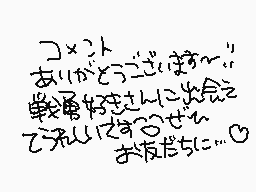 コメント
ありがとうございます〜!!
戦勇好きさんに出会え
てうれしいです〜♡ぜひ
お友だちに…♡